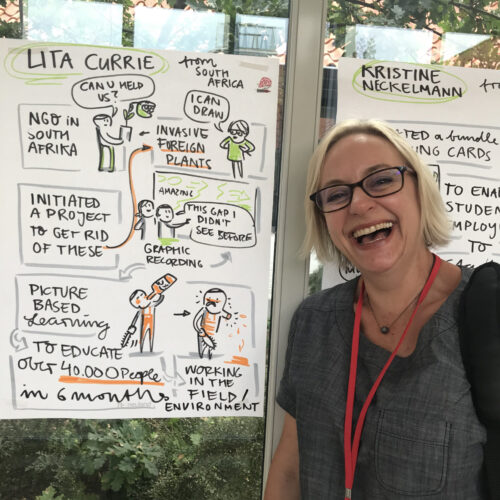 LITA CURRIE
from
SOUTH
AFRICA
CAN U HELP
US?
I CAN
DRAW
NGO IN
SOUTH
AFRIKA
INVASIVE
FOREIGN
PLANTS
INITIATED
A PROJECT
TO GET RID
OF THESE
AMAZING
THIS GAP I
DIDN'T
SEE BEFORE
GRAPHIC
RECORDING
PICTURE
BASED
Learning
TO EDUCATE
over
40.000 People
in 6 months
WORKING
IN THE
FIELD/
ENVIRONMENT
KRISTINE
NECKELMANN
A BUNDLE
CARDS
TO
STUDEN
EMPLOY
TO